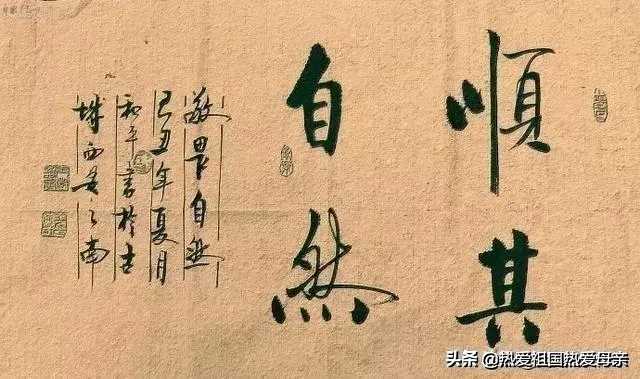 順其
自然
敬畏自然
己丑年夏月
和平書於古
城西安之南
头条 @热爱祖国热爱母亲